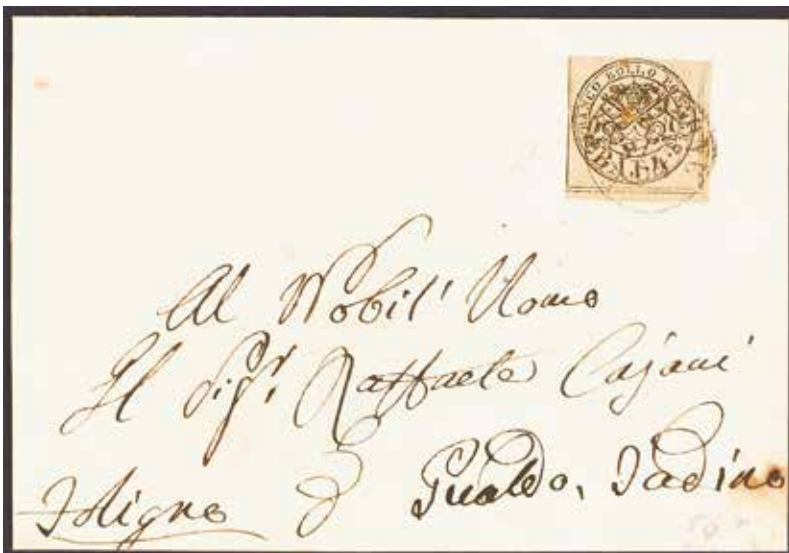 FRANCO BOLLO POSTALE
BAJ. 4
Al Nobil' Uomo
Il Sigr. Raffaele Cajani
Foligno Gualdo, Tadino